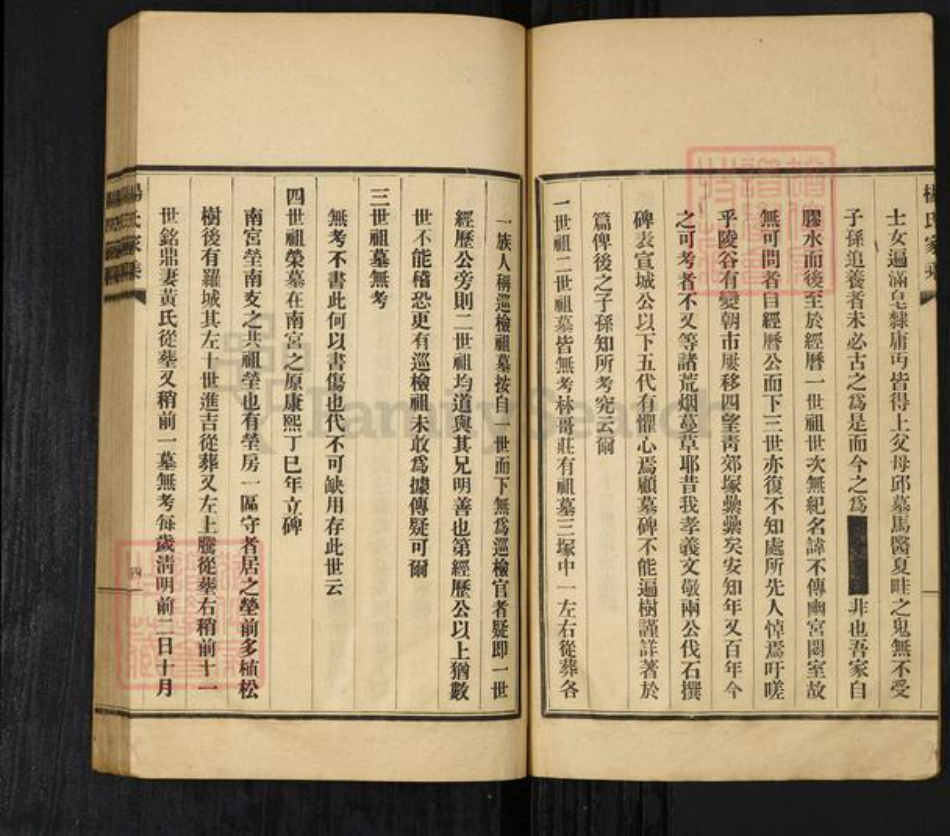 士女遍滿皂隸庸丐皆得上父母邱墓馬醫夏畦之鬼無不受
子孫追養者未必古之爲是而今之爲 非也吾家自
膠水而後至於經曆一世祖世次無紀名諱不傳幽宮閟室故
無可問者自經曆公而下三世亦復不知處所先人悼焉吁嗟
乎陵谷有變朝市屢移四望靑郊塚纍纍矣安知年又百年今
之可考者不又等諸荒烟蔓草耶昔我孝義文敬兩公伐石撰
碑表宣城公以下五代有懼心焉顧墓碑不能遍樹謹詳著於
篇俾後之子孫知所考究云爾
一世祖二世祖墓皆無考林哥莊有祖墓三塚中一左右從葬各
一族人稱巡檢祖墓按自一世而下無爲巡檢官者疑即一世
經歷公旁則二世祖均道與其兄明善也第經歷公以上猶數
世不能稽恐更有巡檢祖未敢爲據傳疑可爾
三世祖墓無考
無考不書此何以書傷也代不可缺用存此世云
四世祖榮墓在南宮之原康熙丁巳年立碑
南宮塋南支之共祖塋也有塋房一區守者居之塋前多植松
樹後有羅城其左十世進吉從葬又左上騰從塟右稍前十一
世銘鼎妻黃氏從塟又稍前一墓無考每歲淸明前二日十月
楊氏家乘
四
FamilySearch